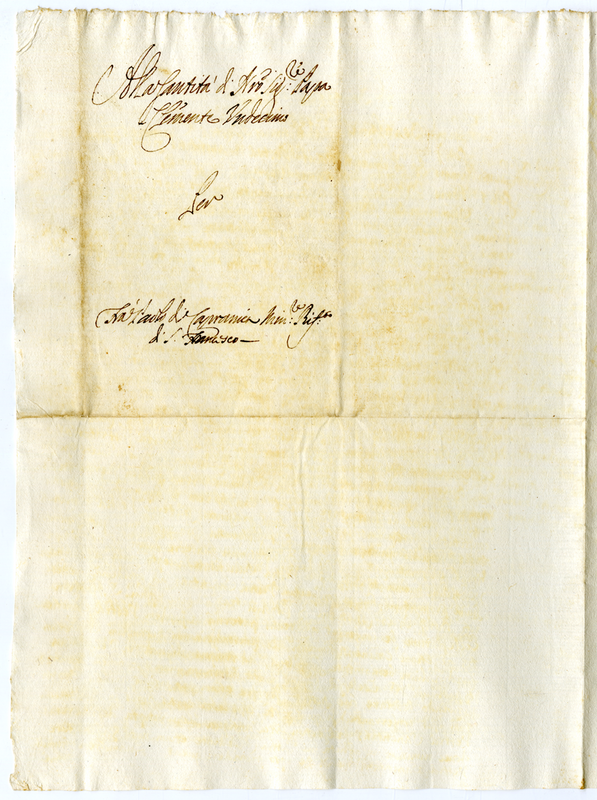 Alla Santità di Nro Sig.re Papa
Clemente Undecimo
Per
Fra Paolo di Capranica Min.re Rif.to
di S. Francesco